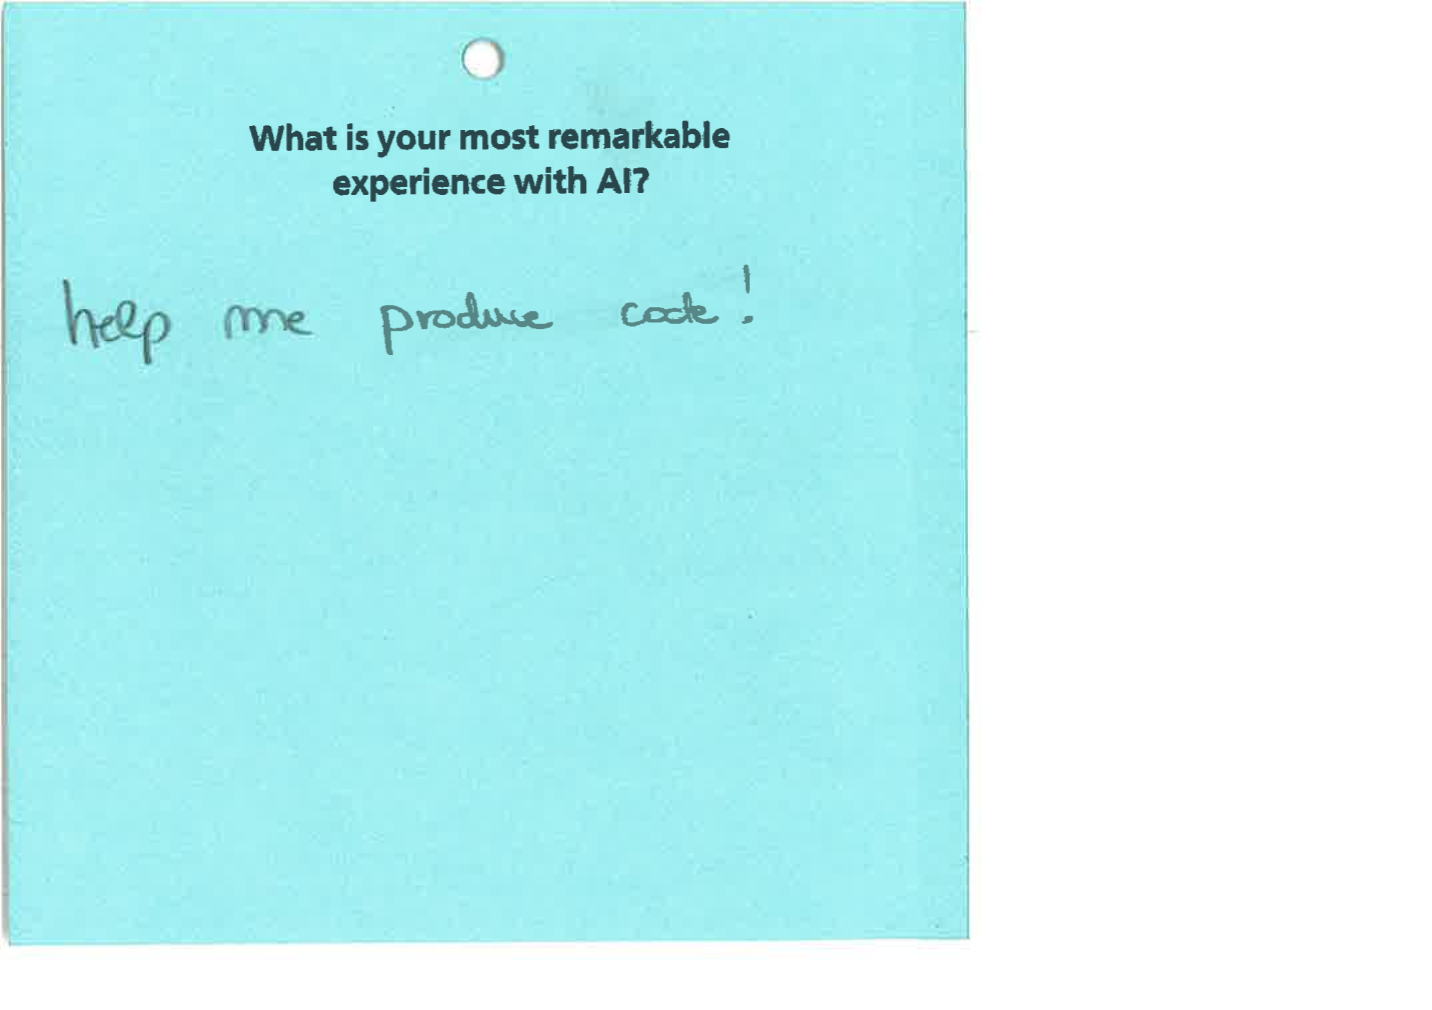 What is your most remarkable
experience with AI?
help me produce code!